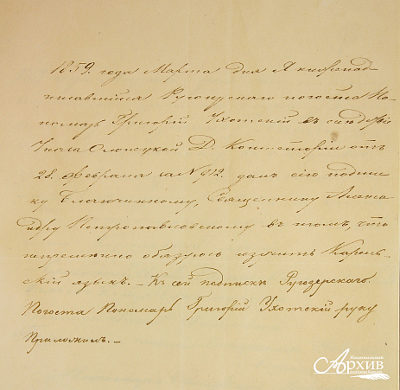 1859. года Марта дня Я нижепод-
писавшійся Ругозерскаго погоста По-
номарь Григорій Ухотскій въ силу
Указа Олонецкой Д. Консисторіи отъ
28. Февраля за № 912. далъ сію подпис-
ку Благочинному, Священнику Алекса
ндру Петропавловскому въ томъ, что
непремѣнно обязуюсь изучить Корель-
скій языкъ. – Къ сей подпискѣ Ругозерскаго
Погоста Пономарь Григорій Ухотскій руку
приложилъ. –
Национальный
Архив
Республики Карелия